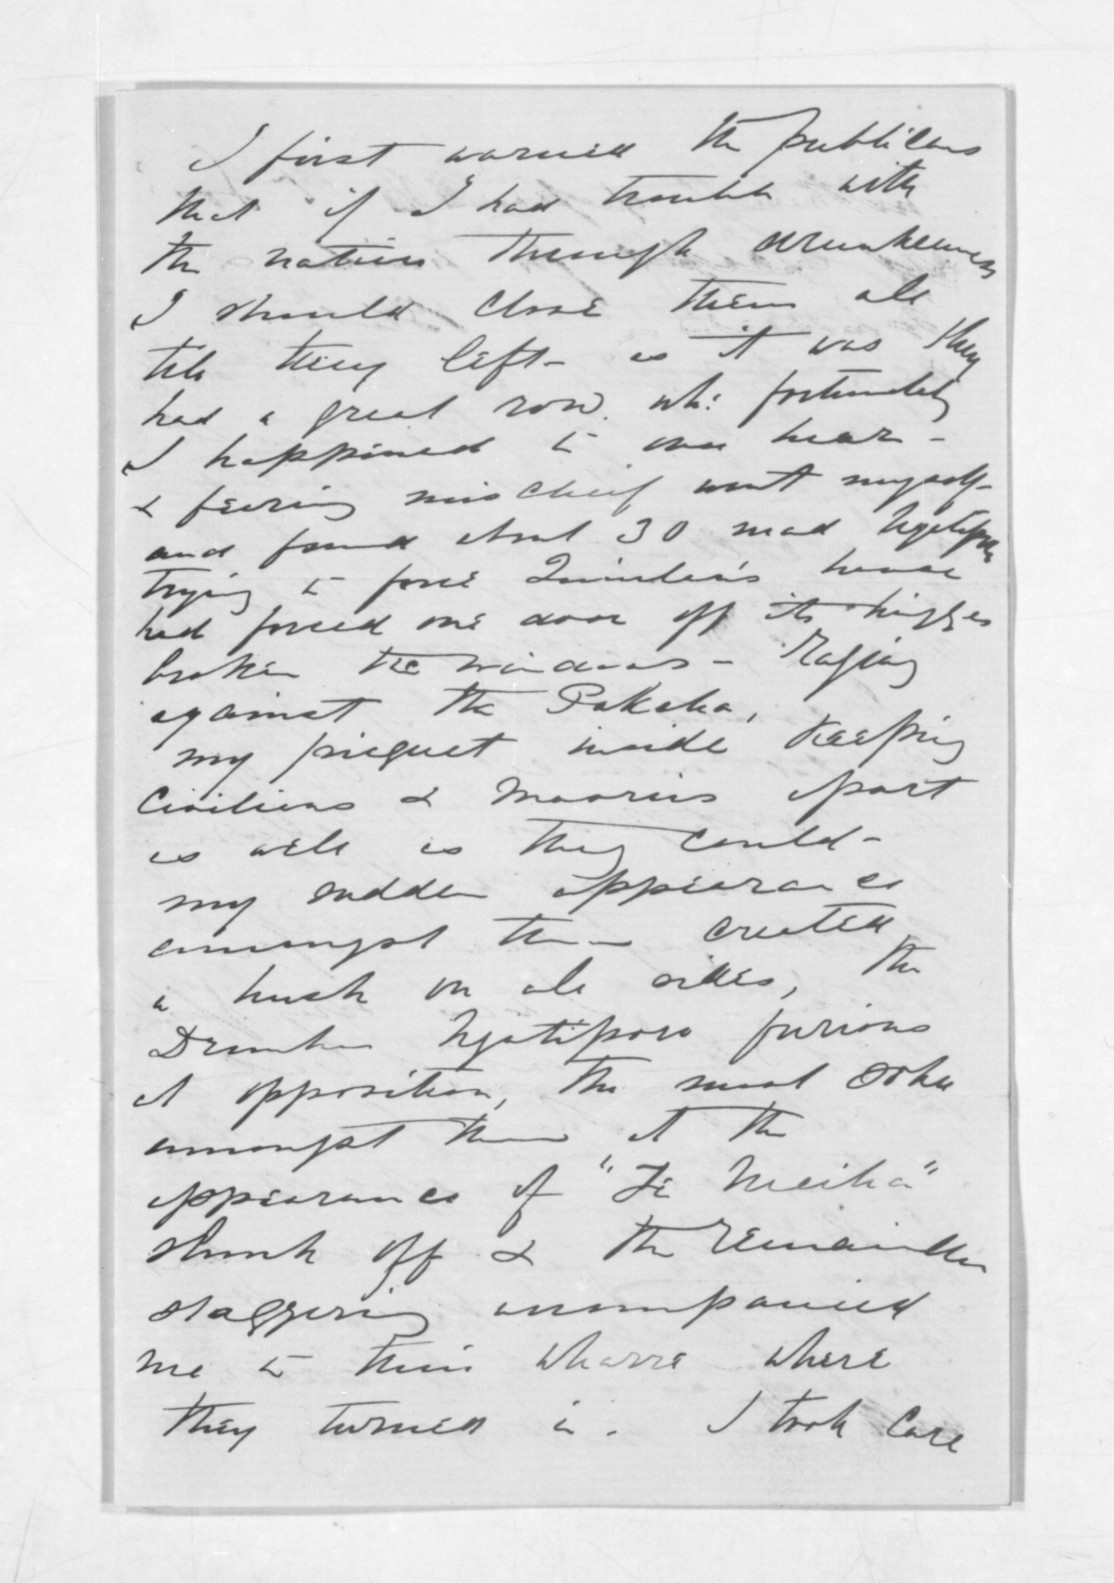 I first warned the publicans
that if I had trouble with
the natives through drunkenness
I should close them all
till they left - as it was they
had a great row. wh: fortunately
I happened to over hear -
& fearing mischief went myself -
and found about 30 mad Ngatiporo
trying to force Quinlan's house
had forced one door off its hinges
broken the windows - Raging
against the Pakeha,
my picquet inside keeping
Civilians & Maoris apart
as well as they could -
my sudden appearance
amongst them created
a hush on all sides, the
Drunken Ngatiporo furious
at opposition, the most sober
amongst them at the
appearance of "Te Meiha"
slunk off & the remainder
staggering accompanied
me to their wharre where
they turned in. I took care